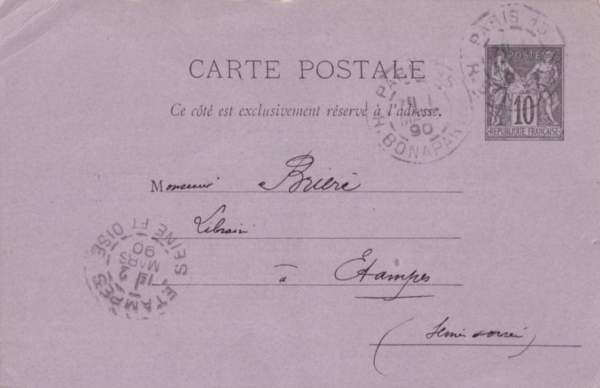 CARTE POSTALE
Ce côté est exclusivement réservé à l'adresse.
POSTES
10
REPUBLIQUE FRANÇAISE
PARIS
R. BONAPARTE
MARS
90
Monsieur Brière
Libraire
à Etampes
(Seine &
ETAMPES
SEINE ET OISE
MARS
90